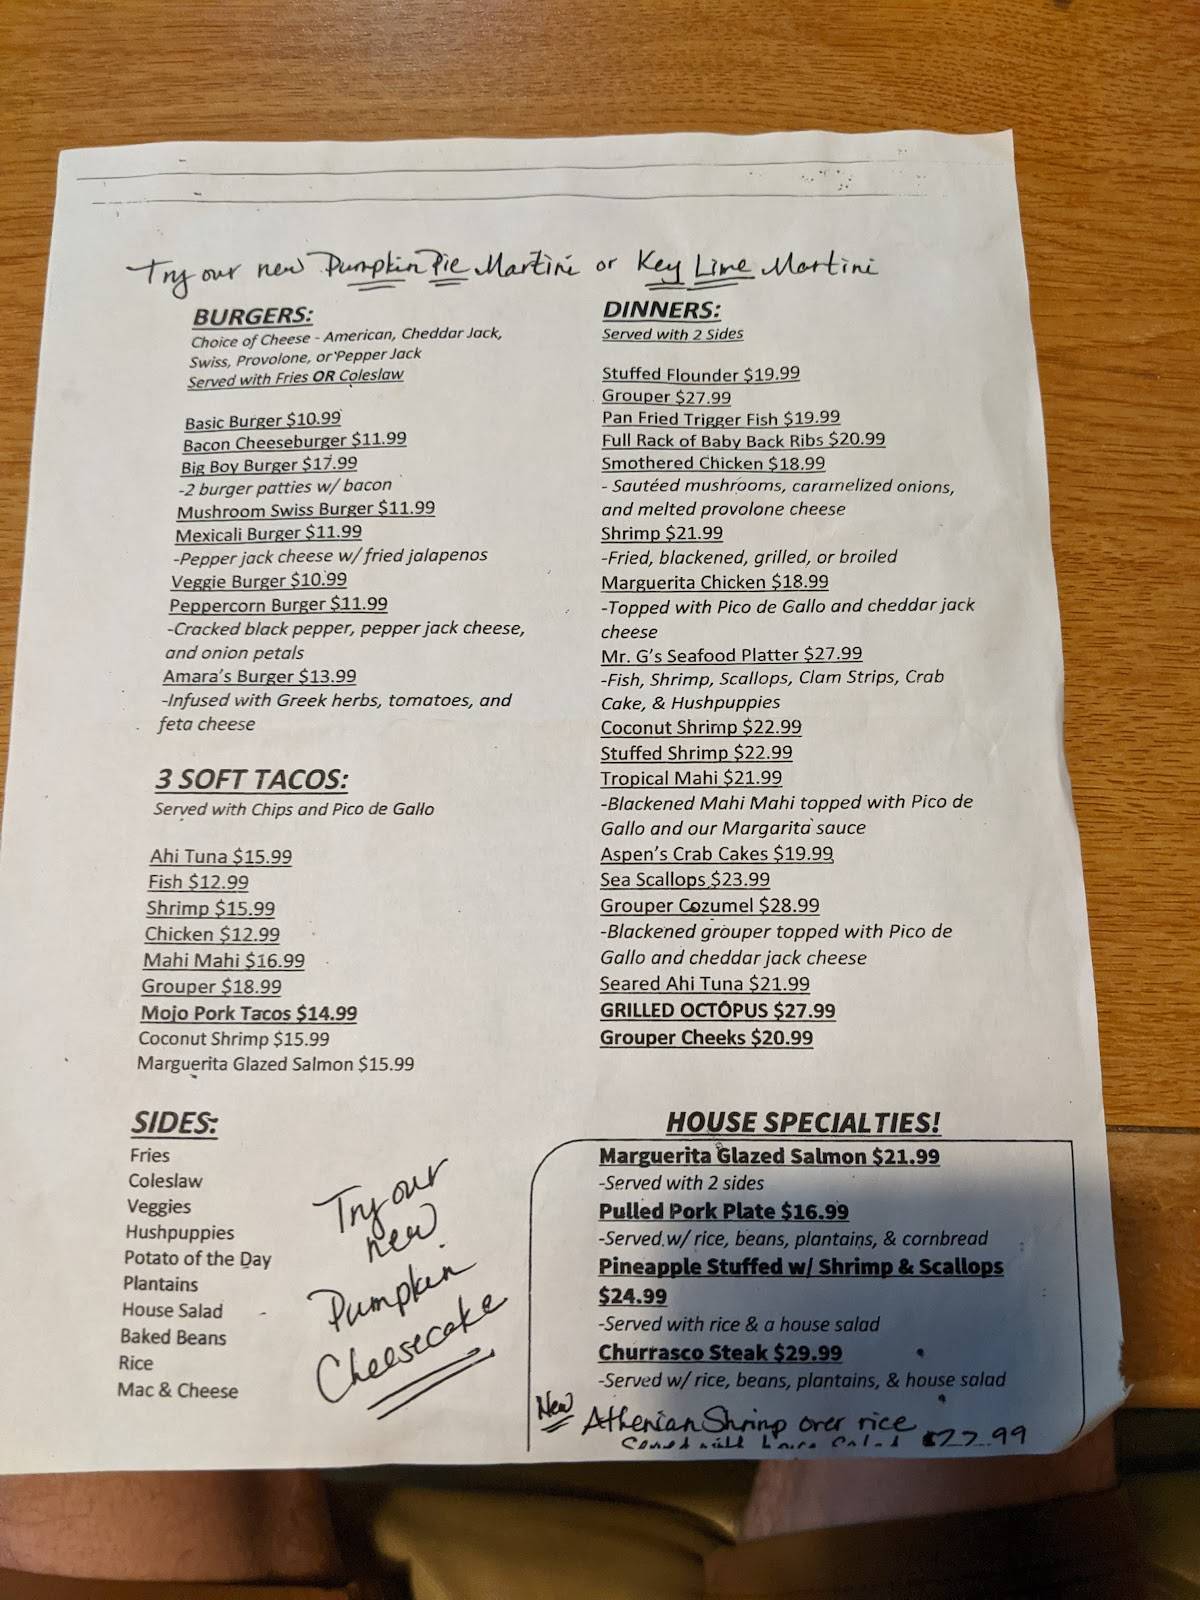 Try our new Pumpkin Pie Martini or Key Lime Martini
BURGERS:
Choice of Cheese - American, Cheddar Jack,
Swiss, Provolone, or Pepper Jack
Served with Fries OR Coleslaw
Basic Burger $10.99
Bacon Cheeseburger $11.99
Big Boy Burger $17.99
-2 burger patties w/ bacon
Mushroom Swiss Burger $11.99
Mexicali Burger $11.99
-Pepper jack cheese w/ fried jalapenos
Veggie Burger $10.99
Peppercorn Burger $11.99
-Cracked black pepper, pepper jack cheese,
and onion petals
Amara's Burger $13.99
-Infused with Greek herbs, tomatoes, and
feta cheese
3 SOFT TACOS:
Served with Chips and Pico de Gallo
Ahi Tuna $15.99
Fish $12.99
Shrimp $15.99
Chicken $12.99
Mahi Mahi $16.99
Grouper $18.99
Mojo Pork Tacos $14.99
Coconut Shrimp $15.99
Marguerita Glazed Salmon $15.99
SIDES:
Fries
Coleslaw
Veggies
Hushpuppies
Potato of the Day
Plantains
House Salad
Baked Beans
Rice
Mac & Cheese
Try our
new
Pumpkin
Cheesecake
DINNERS:
Served with 2 Sides
Stuffed Flounder $19.99
Grouper $27.99
Pan Fried Trigger Fish $19.99
Full Rack of Baby Back Ribs $20.99
Smothered Chicken $18.99
- Sautéed mushrooms, caramelized onions,
and melted provolone cheese
Shrimp $21.99
-Fried, blackened, grilled, or broiled
Marguerita Chicken $18.99
-Topped with Pico de Gallo and cheddar jack
cheese
Mr. G's Seafood Platter $27.99
-Fish, Shrimp, Scallops, Clam Strips, Crab
Cake, & Hushpuppies
Coconut Shrimp $22.99
Stuffed Shrimp $22.99
Tropical Mahi $21.99
-Blackened Mahi Mahi topped with Pico de
Gallo and our Margarita sauce
Aspen's Crab Cakes $19.99
Sea Scallops $23.99
Grouper Cozumel $28.99
-Blackened grouper topped with Pico de
Gallo and cheddar jack cheese
Seared Ahi Tuna $21.99
GRILLED OCTOPUS $27.99
Grouper Cheeks $20.99
HOUSE SPECIALTIES!
Marguerita Glazed Salmon $21.99
-Served with 2 sides
Pulled Pork Plate $16.99
-Served w/ rice, beans, plantains, & cornbread
Pineapple Stuffed w/ Shrimp & Scallops
$24.99
-Served with rice & a house salad
Churrasco Steak $29.99
-Served w/ rice, beans, plantains, & house salad
New Athenian Shrimp over rice
Served with house Salad $22.99